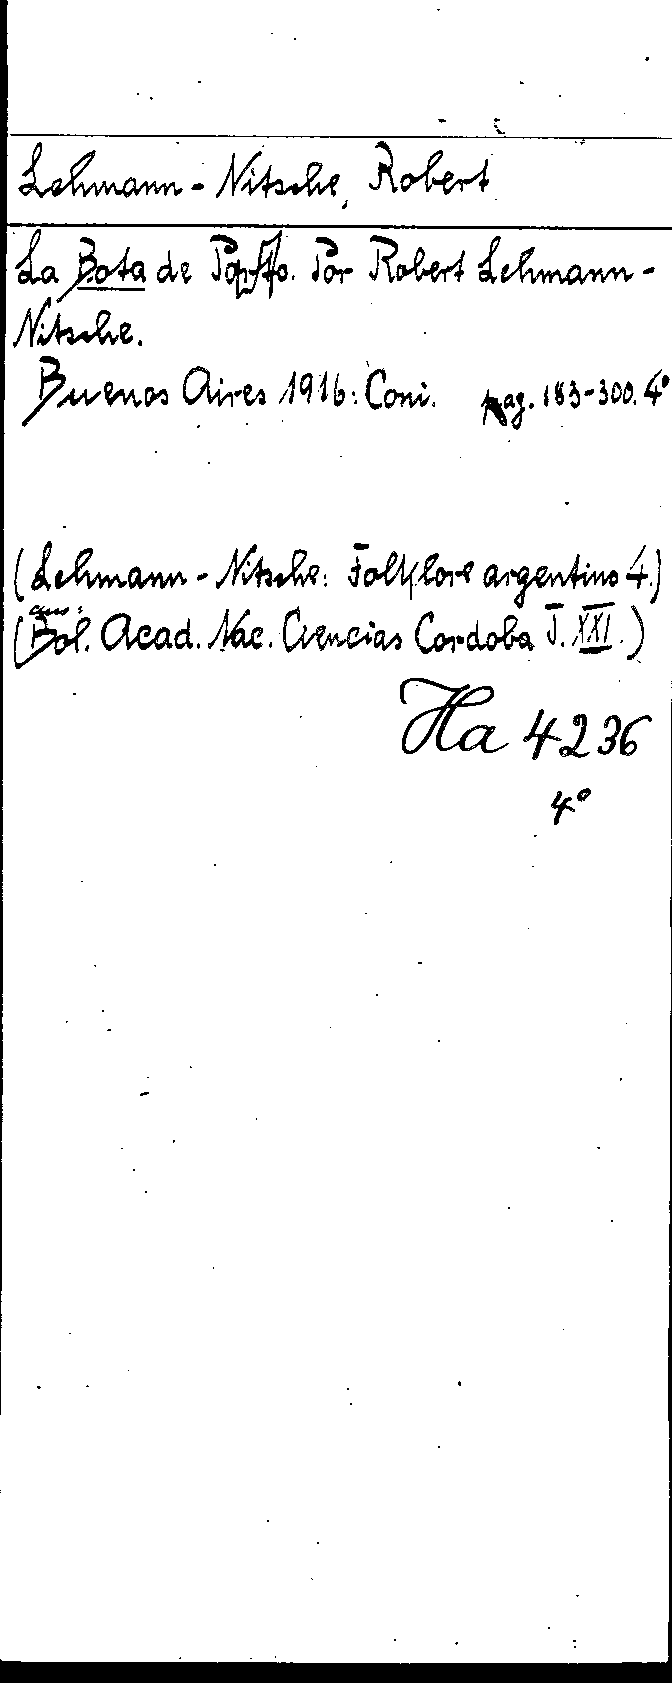 Lehmann-Nitsche, Robert
La Bota de Potro. Por Robert Lehmann-
Nitsche.
Buenos Aires 1916: Coni. pag. 183-300. 4°
(Lehmann-Nitsche: Folklore argentino 4.)
aus:
(Bol. Acad. Nac. Ciencias Cordoba T. XXI.)
Ha 4236
4°